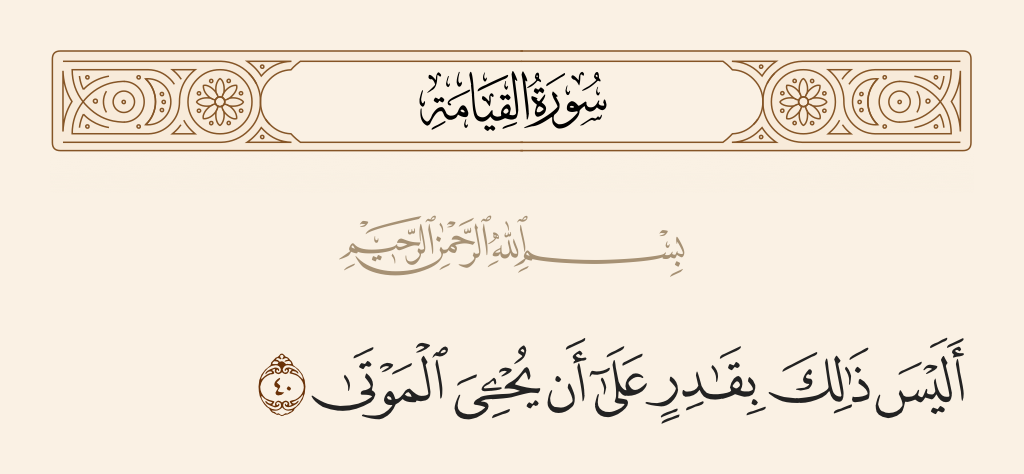 سُورَةُ القِيَامَةِ
بِسْمِ ٱللَّهِ ٱلرَّحْمَٰنِ ٱلرَّحِيمِ
أَلَيْسَ ذَٰلِكَ بِقَٰدِرٍ عَلَىٰٓ أَن يُحْۦِيَ ٱلْمَوْتَىٰ ٤٠